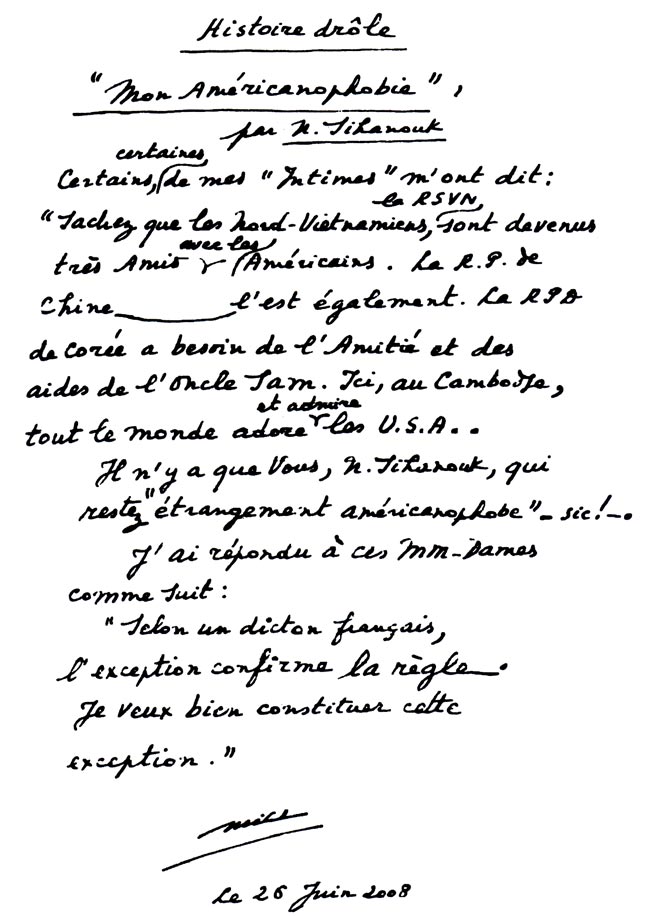 Histoire drôle
"Mon Américanophobie",
par N. Sihanouk
Certains, certaines, de mes "Intimes" m'ont dit :
"Sachez que les Nord-Vietnamiens, la RSVN, sont devenus
très Amis avec les Américains. La R.P. de
Chine l'est également. La RPD
de Corée a besoin de l'Amitié et des
aides de l'Oncle Sam. Ici, au Cambodge,
tout le monde adore et admire les U.S.A..
Il n'y a que Vous, N. Sihanouk, qui
restez "étrangement américanophobe" – sic ! –.
J'ai répondu à ces MM-Dames
comme suit :
"Selon un dicton français,
l'exception confirme la règle.
Je veux bien constituer cette
exception."
Le 26 Juin 2008